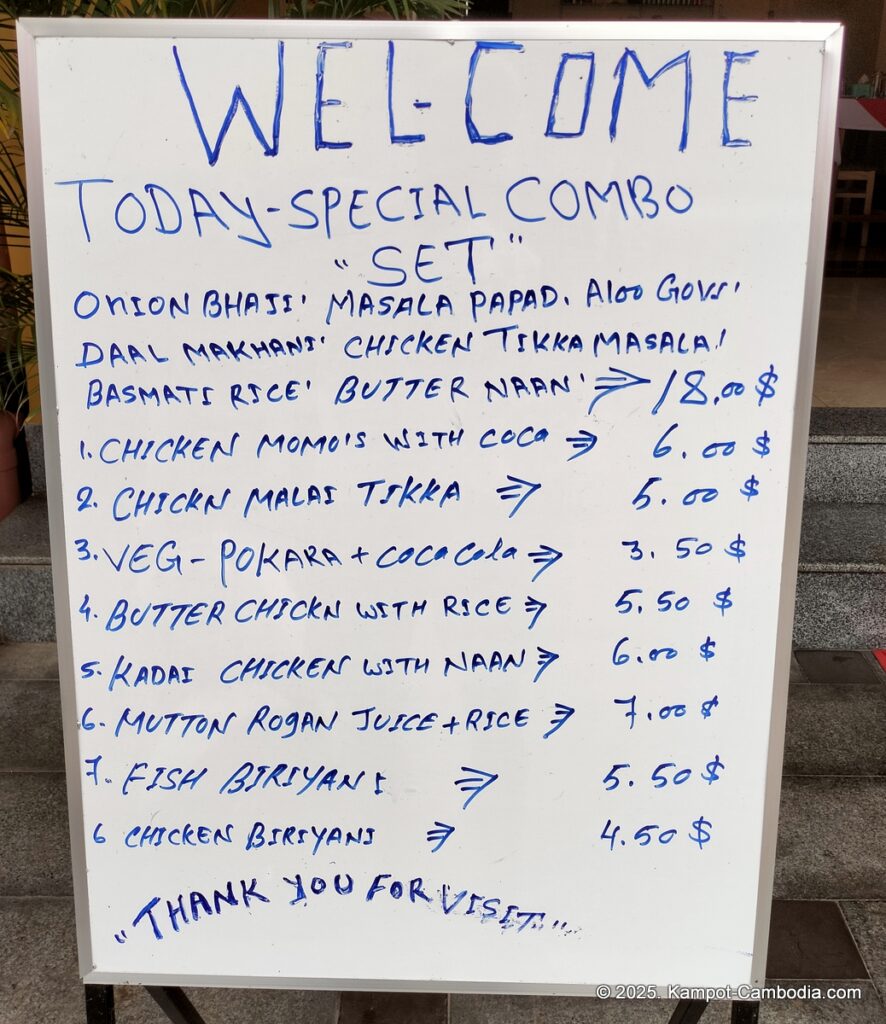 WELCOME
TODAY-SPECIAL COMBO
"SET"
ONION BHAJI' MASALA PAPAD. Aloo GOVI'
DAAL MAKHANI' CHICKEN TIKKA MASALA!
BASMATI RICE' BUTTER NAAN' ⇒ 18.00 $
1. CHICKEN MOMO'S WITH COCA ⇒ 6.00 $
2. CHICKN MALAI TIKKA ⇒ 5.00 $
3. VEG - POKARA + coca cola ⇒ 3.50 $
4. BUTTER CHICKN WITH RICE ⇒ 5.50 $
5. KADAI CHICKEN WITH NAAN ⇒ 6.00 $
6. MUTTON ROGAN JUICE + RICE ⇒ 7.00 $
7. FISH BIRIYANI ⇒ 5.50 $
6 CHICKEN BIRIYANI ⇒ 4.50 $
"THANK YOU FOR VISIT"
© 2025. Kampot-Cambodia.com